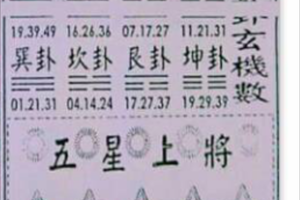 卦玄機數
19.39.49 16.26.36 07.17.27 11.21.31
巽卦 坎卦 艮卦 坤卦
01.21.31 04.14.24 17.27.37 19.29.39
五星上將